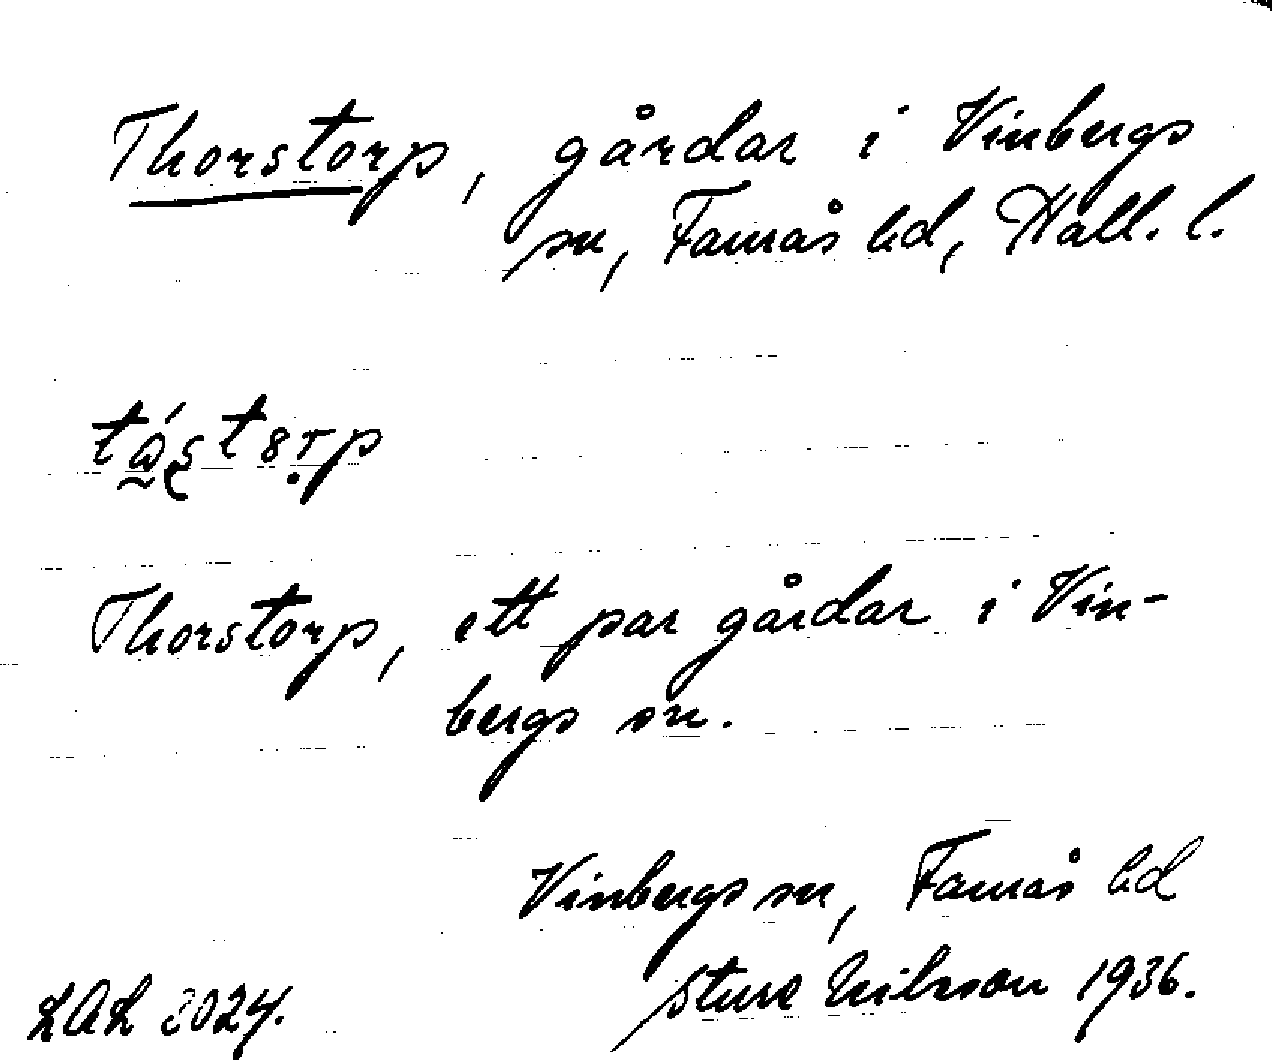 Thorstorp, gårdar i Vinbergs
sn, Faurås hd, Hall. l.
Thorstorp, ett par gårdar i Vin-
bergs sn.
Vinbergs sn, Faurås hd
LAL 2024. Sture Nilsson 1936.